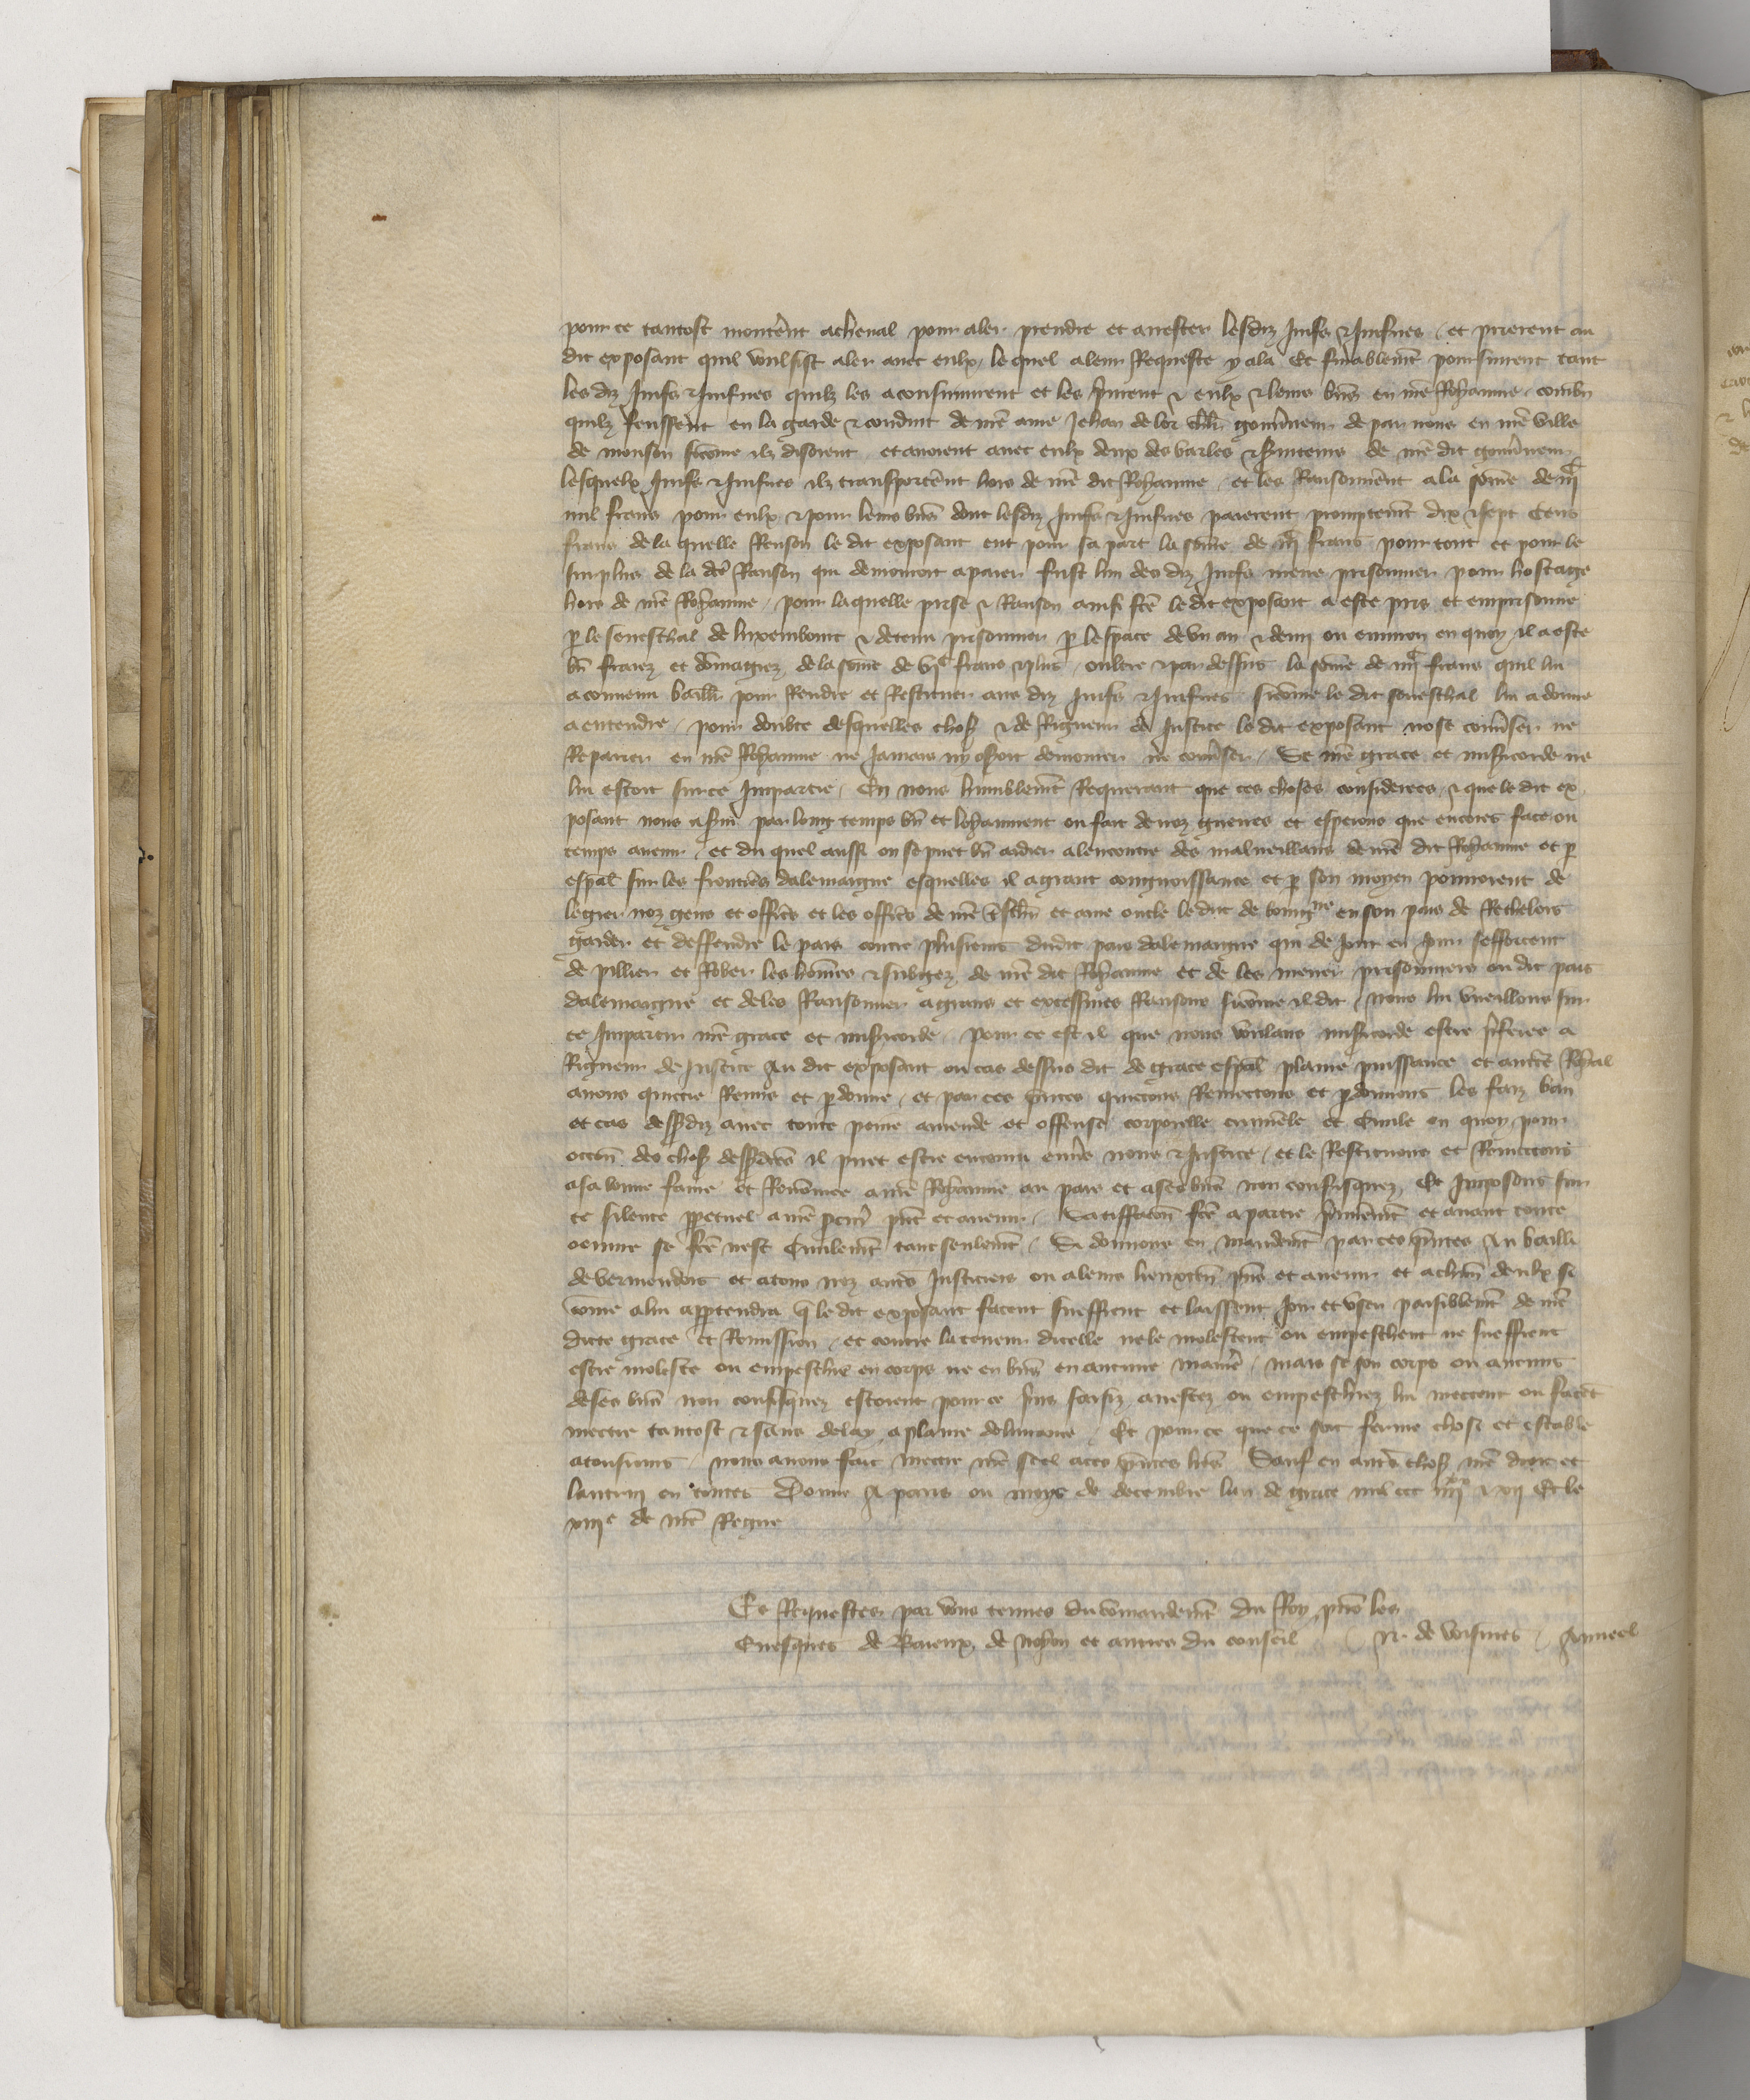 pour ce tantost monterent a cheval pour aler prendre et arrester lesdiz Juifs & Juifves / et prierent au
dit exposant quil voulsist aler avec eulx / le quel a leur Requeste y ala Et finablemt poursuirent tant
les diz Juifs & Juifves quilz les aconsuiuirent et les prirent & eulx & leurs bns en nre Royaume / combn
quilz feussent en la garde & conduit de nre ame Jehan de lor chlr gouvneur de par nous en nre ville
de monson sicome ilz disoient / et avoient avec eulx deux des varles & svuiteurs de nre dit gouvneur
lesquelx Juifs & Juifves ilz transporterent hors de nre dit Royaume / et les Ransonnerent a la some de
mil frans pour eulx & pour leurs bns dont lesdiz Juifs & Juifves paierent promptemt dix & sept Cens
frans de la quelle Renson le dit exposant eut pour sa part la some de frans pour tout et pour le
surplus de la dce Ranson qui demouroit a paier fust lun des diz Juifs mene prisonnier pour hostage
hors de nre Royaume / pour laquelle prise & Ranson ainsi fce le dit exposant a este pris et emprisonne
p le seneschal de luxembourc & detenu prisonnier p lespace de un an & demi ou environ en quoy il a este
bn fraiez et domagiez de la some de frans & plus / oultre & par dessus la some de frans quil lui
a convenu baillr pour Rendre et Restituer aus diz Juifs & Juifves sicome le dit seneschal lui a donne
a entendre / pour doubte desquelles chos & de Rigueur de Justice le dit exposant nose convser ne
Reparier en nre Royaume ne Jamais ny oseroit demourer ne convser / Se nre grace et misicorde ne
lui estoit sur ce Impartie / En nous humblemt Requerant que ces choses considerees / & que le dit ex
posant nous a svi par long temps bn et loyaument ou fait de noz guerres et esperons que encores face ou
temps avenir / et du quel aussi on se puet bn aidier a lencontre des malveillans de nre dit Royaume et p
espal sur les frontieres dalemaigne esquelles il a grant congnoissance et p son moyen pourroient de
legier noz gens et officrs et les officrs de nre et ame oncle le duc de bourgne en son pais de Rethelois
garder et deffendre le pais contre plusieurs dudit pais dalemaigne qui de Jour en Jour sefforcent
de pillier et Rober les homes & subgez de nre dit Royaume et de les mener prisonniers ou dit pais
dalemaigne et de les Ransonner a grans et excessives Ransons sicome il dit / nous lui vueillons sur
ce Impartir nre grace et misicorde / Pour ce est il que nous voulans misicorde estre pferee a
Rigueur de Justice Au dit exposant ou cas dessus dit de grace espal plaine puissance et aucte Royal
avons quictie Remis et pdonne / et par ces pntes quictons Remectons et pdonnons les faiz ban
et cas dessdiz avec toute peine amende et offense corporelle criminele et Civile en quoy pour
occon des chos dessdces il puet estre encouru envrs nous & Justice / et le Restituons et Remectons
a sa bonne fame et Renomee a nre Royaume au pais et a ses bns non confisquez Et Imposons sur
ce silence ppetuel a nre pcur pnt et avenir / Satisffacon fce a partie pmieremt et avant toute
oeuvre se fce nest Civilemt tant seulemt / Si donnons en mandemt par ces pntes Au bailli
de vermendois et a tous noz autrs Justiciers ou a leurs lieuxten pns et avenir et a chun deulx si
come a lui apptendra q le dit exposant facent sueffrent et laissent Joir et user paisiblemt de nre
dicte grace et Remission / et contre la teneur dicelle ne le molestent ou empeschent ne sueffrent
estre moleste ou empeschie en corps ne en bns en aucune manre / mais se son corps ou aucuns
de ses bns non confisquez estoient pour ce pris saisiz arrestez ou empeschiez lui mectent ou facent
mectre tantost & sans delay a plaine delivrance / Et pour ce que ce soit ferme chose et estable
a tousiours / nous avons fait mectre nre seel a ces pntes lres Sauf en autrs chos nre droit et
lautruy en toutes Donne A paris ou moys de decembre lan de grace mil ccc iiiixx & xii Et le
xiiie de nre Regne

Es Requestes par vous tenues du comandemt du Roy pns les
Evesques de Baieux, de Noyon et autres du conseil / N. de voisines / Anneel